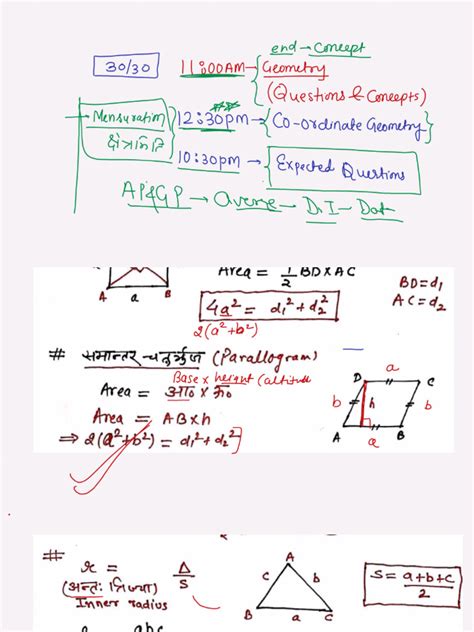 end → Concept
30/30 11:00AM → Geometry
(Questions & Concepts)
Mensuration 12:30pm → Co-ordinate Geometry
क्षेत्रमिति
10:30pm → Expected Questions
AP&GP → → D.I →
Area = 1/2 BD×AC
BD=d₁
AC=d₂
A a B
4a² = d₁²+d₂²
2(a²+b²)
# समान्तर चतुर्भुज (Parallogram)
Base × height (altitude
Area = आ० × ऊँ०
Area = AB×h
⇒ 2(a²+b²) = d₁²+d₂²
D a C
b h b
A a B
# r = Δ/S
(अन्तः त्रिज्या)
Inner radius
A
c b
B a C
S = a+b+c/2
abc